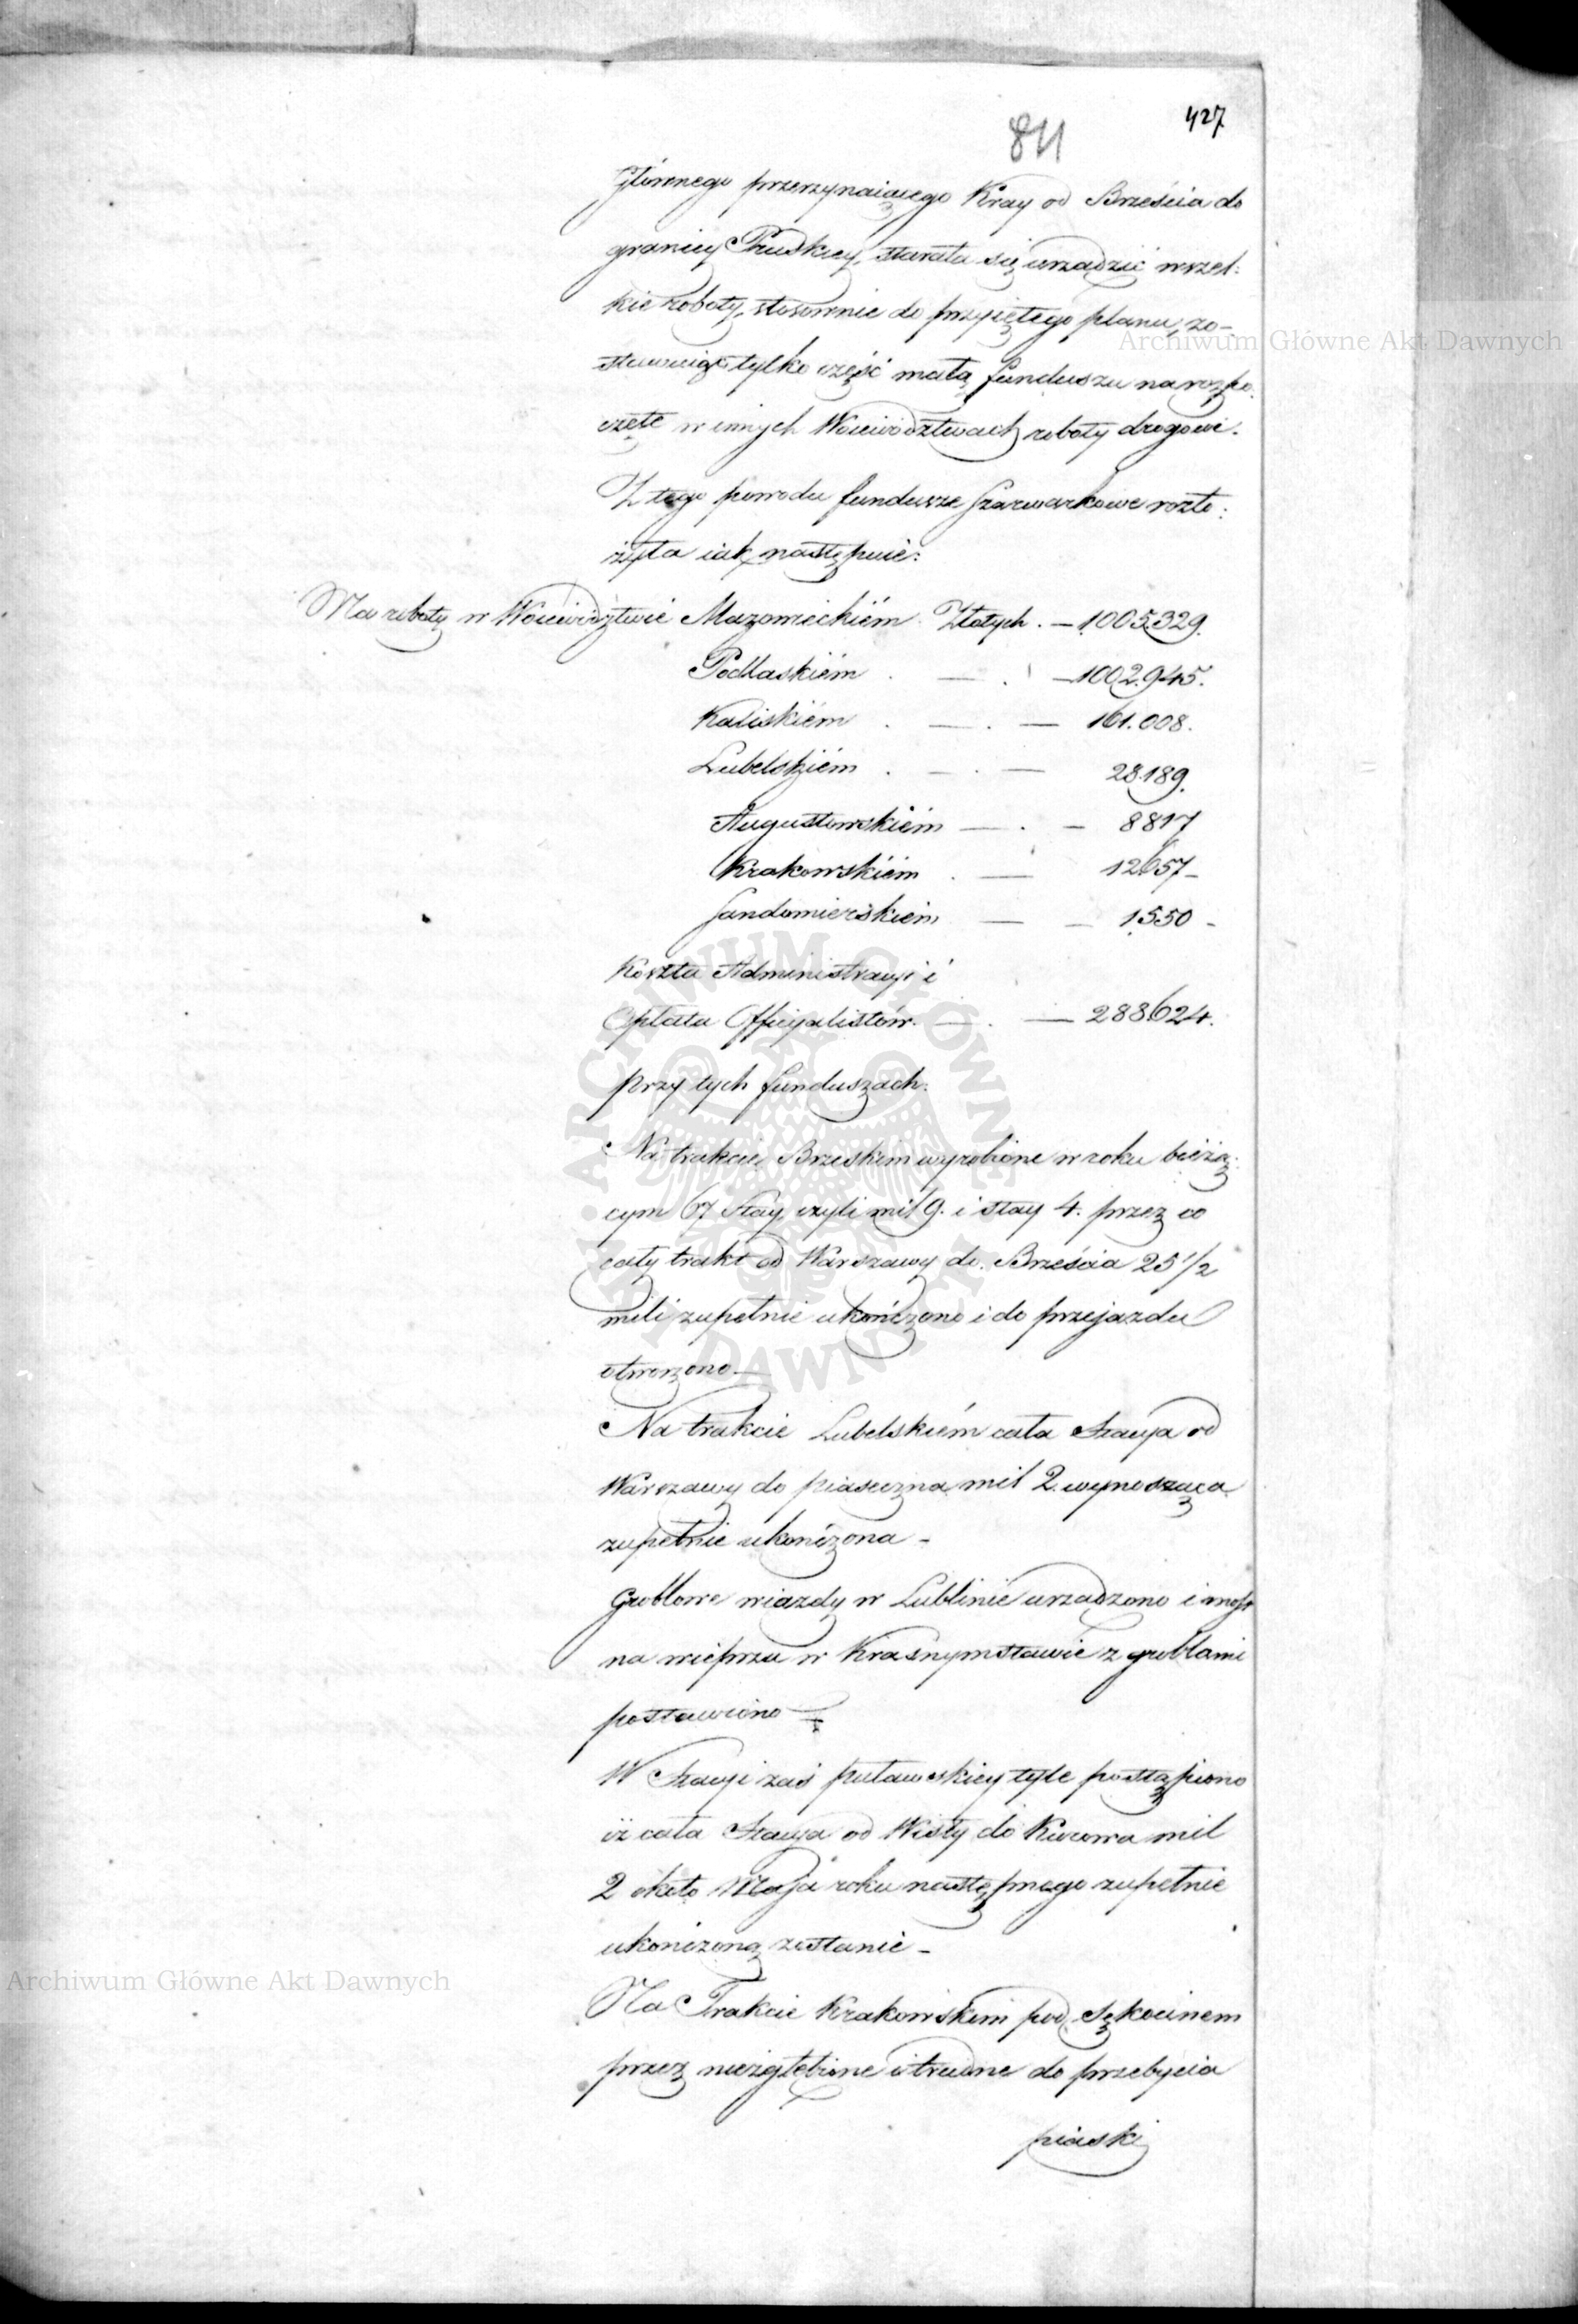 427
811
głównego przerzynaiącego Kray od Brześcia do
granicy Pruskiey, starała się urządzić wszel:
kie roboty, stosownie do przyiętego planu, zo-
stawuiąc tylko część małą funduszu na rozpo:
częte w innych Woiewództwach roboty drogowe.
Z tego powodu fundusze Szarwarkowe rozło:
żyła iak następuie:
Na roboty w Woiewództwie Mazowieckiém Złotych . — 1.005.329.
Podlaskiém . — . — 1002.945.
Kaliskiém . — . — 161.008.
Lubelskiém . — . — 28.189.
Augustowskiém — . — 8817
Krakowskiém . — 12657 –
Sandomierskiém — — 1.550 –
Koszta Administracyi i
Opłata Officyalistów. — . — 288.624.
przy tych funduszach.
Na trakcie Brzeskim wyrobione w roku bieżą:
cym 67 stay, czyli mil 9. i stay 4. przez co
cały trakt od Warszawy do Brześcia 25 1/2
mili zupełnie ukończono i do przejazdu
otworzono —
Na trakcie Lubelskiém cała Stacya od
Warszawy do piaseczna mil 2. wynosząca
zupełnie ukończona –
Groblowe wiazdy w Lublinie urządzono i most
na wieprzu w Krasnymstawie z groblami
postawiono —
W Stacyi zaś puławskiey tyle postąpiono
iż cała Stacya od Wisły do Kurowa mil
2 około Maja roku następnego zupełnie
ukończoną zostanie –
Na Trakcie Krakowskim pod Sękocinem
przez niezgłębione i trudne do przebycia
piaski
Archiwum Główne Akt Dawnych
Archiwum Główne Akt Dawnych
ARCHIWUM GŁÓWNE AKT DAWNYCH